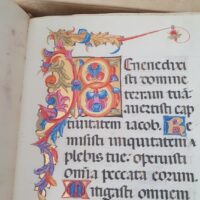 Benedixi
sti domine
terram tuā
avertisti cap
tivitatem iacob. Re
misisti iniquitatem
plebis tue: operuisti
om̄ia peccata eorum.
Mitigasti omnem